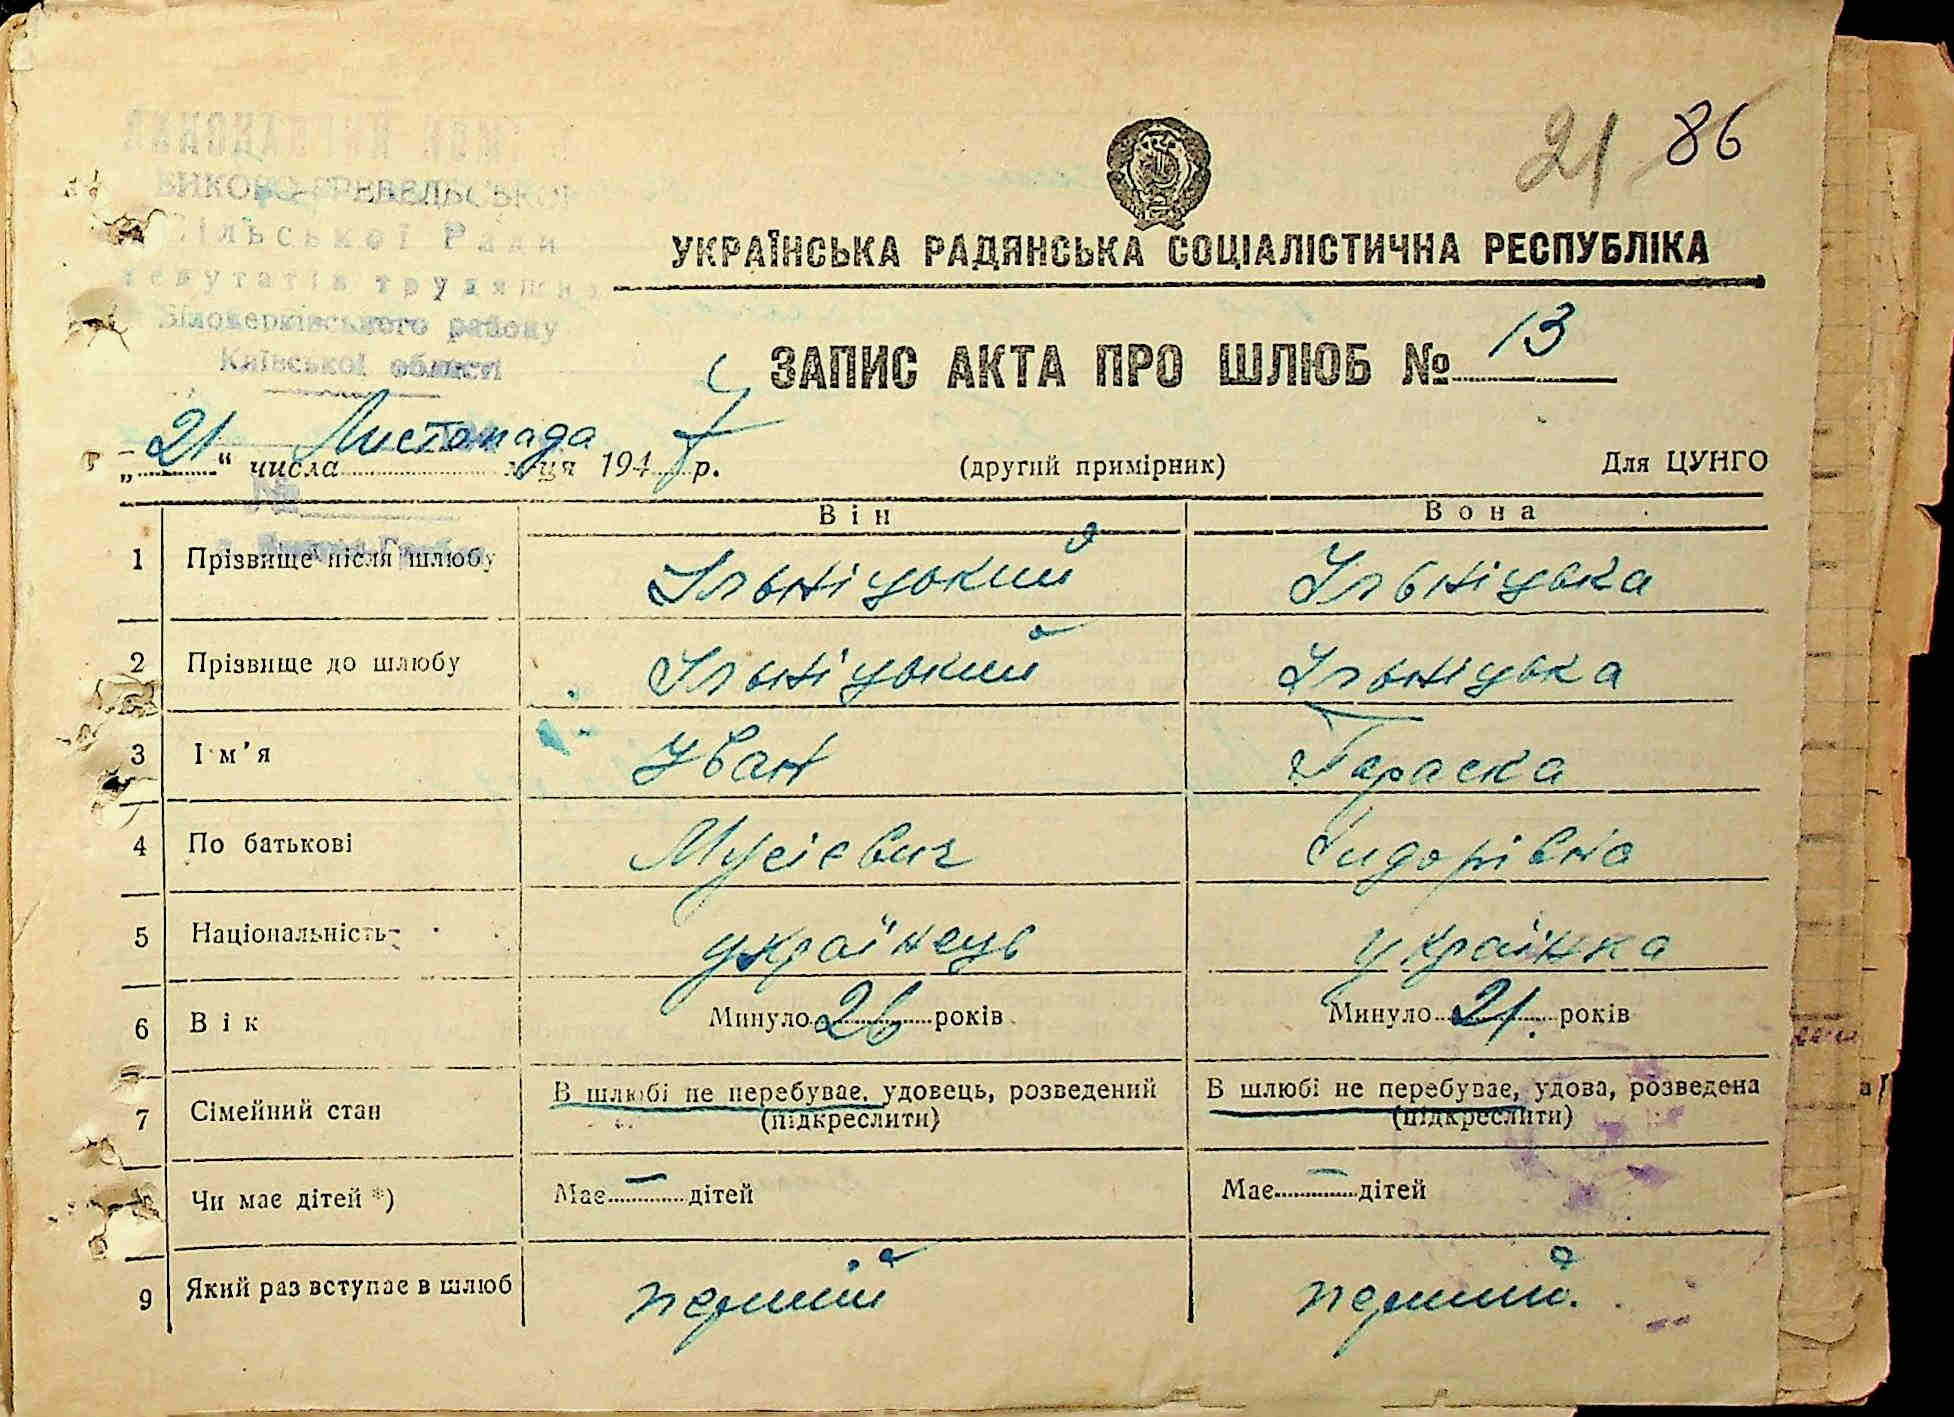 21 86
ВИКОНАВЧИЙ КОМІТЕТ
Сільської Ради
депутатів трудящих
Білоцерківського району
Київської області
УКРАЇНСЬКА РАДЯНСЬКА СОЦІАЛІСТИЧНА РЕСПУБЛІКА
ЗАПИС АКТА ПРО ШЛЮБ № 13
„21“ числа Листопада м-ця 1947 р. (другий примірник) Для ЦУНГО
Він Вона
1 Прізвище після шлюбу Ільніцький Ільніцька
2 Прізвище до шлюбу Ільніцький Ільніцька
3 Ім'я Іван Параска
4 По батькові Мусієвич Сидорівна
5 Національність українець українка
6 Вік Минуло 26 років Минуло 21 років
7 Сімейний стан В шлюбі не перебуває, удовець, розведений В шлюбі не перебуває, удова, розведена
(підкреслити) (підкреслити)
Чи має дітей *) Має — дітей Має — дітей
9 Який раз вступає в шлюб перший перший.